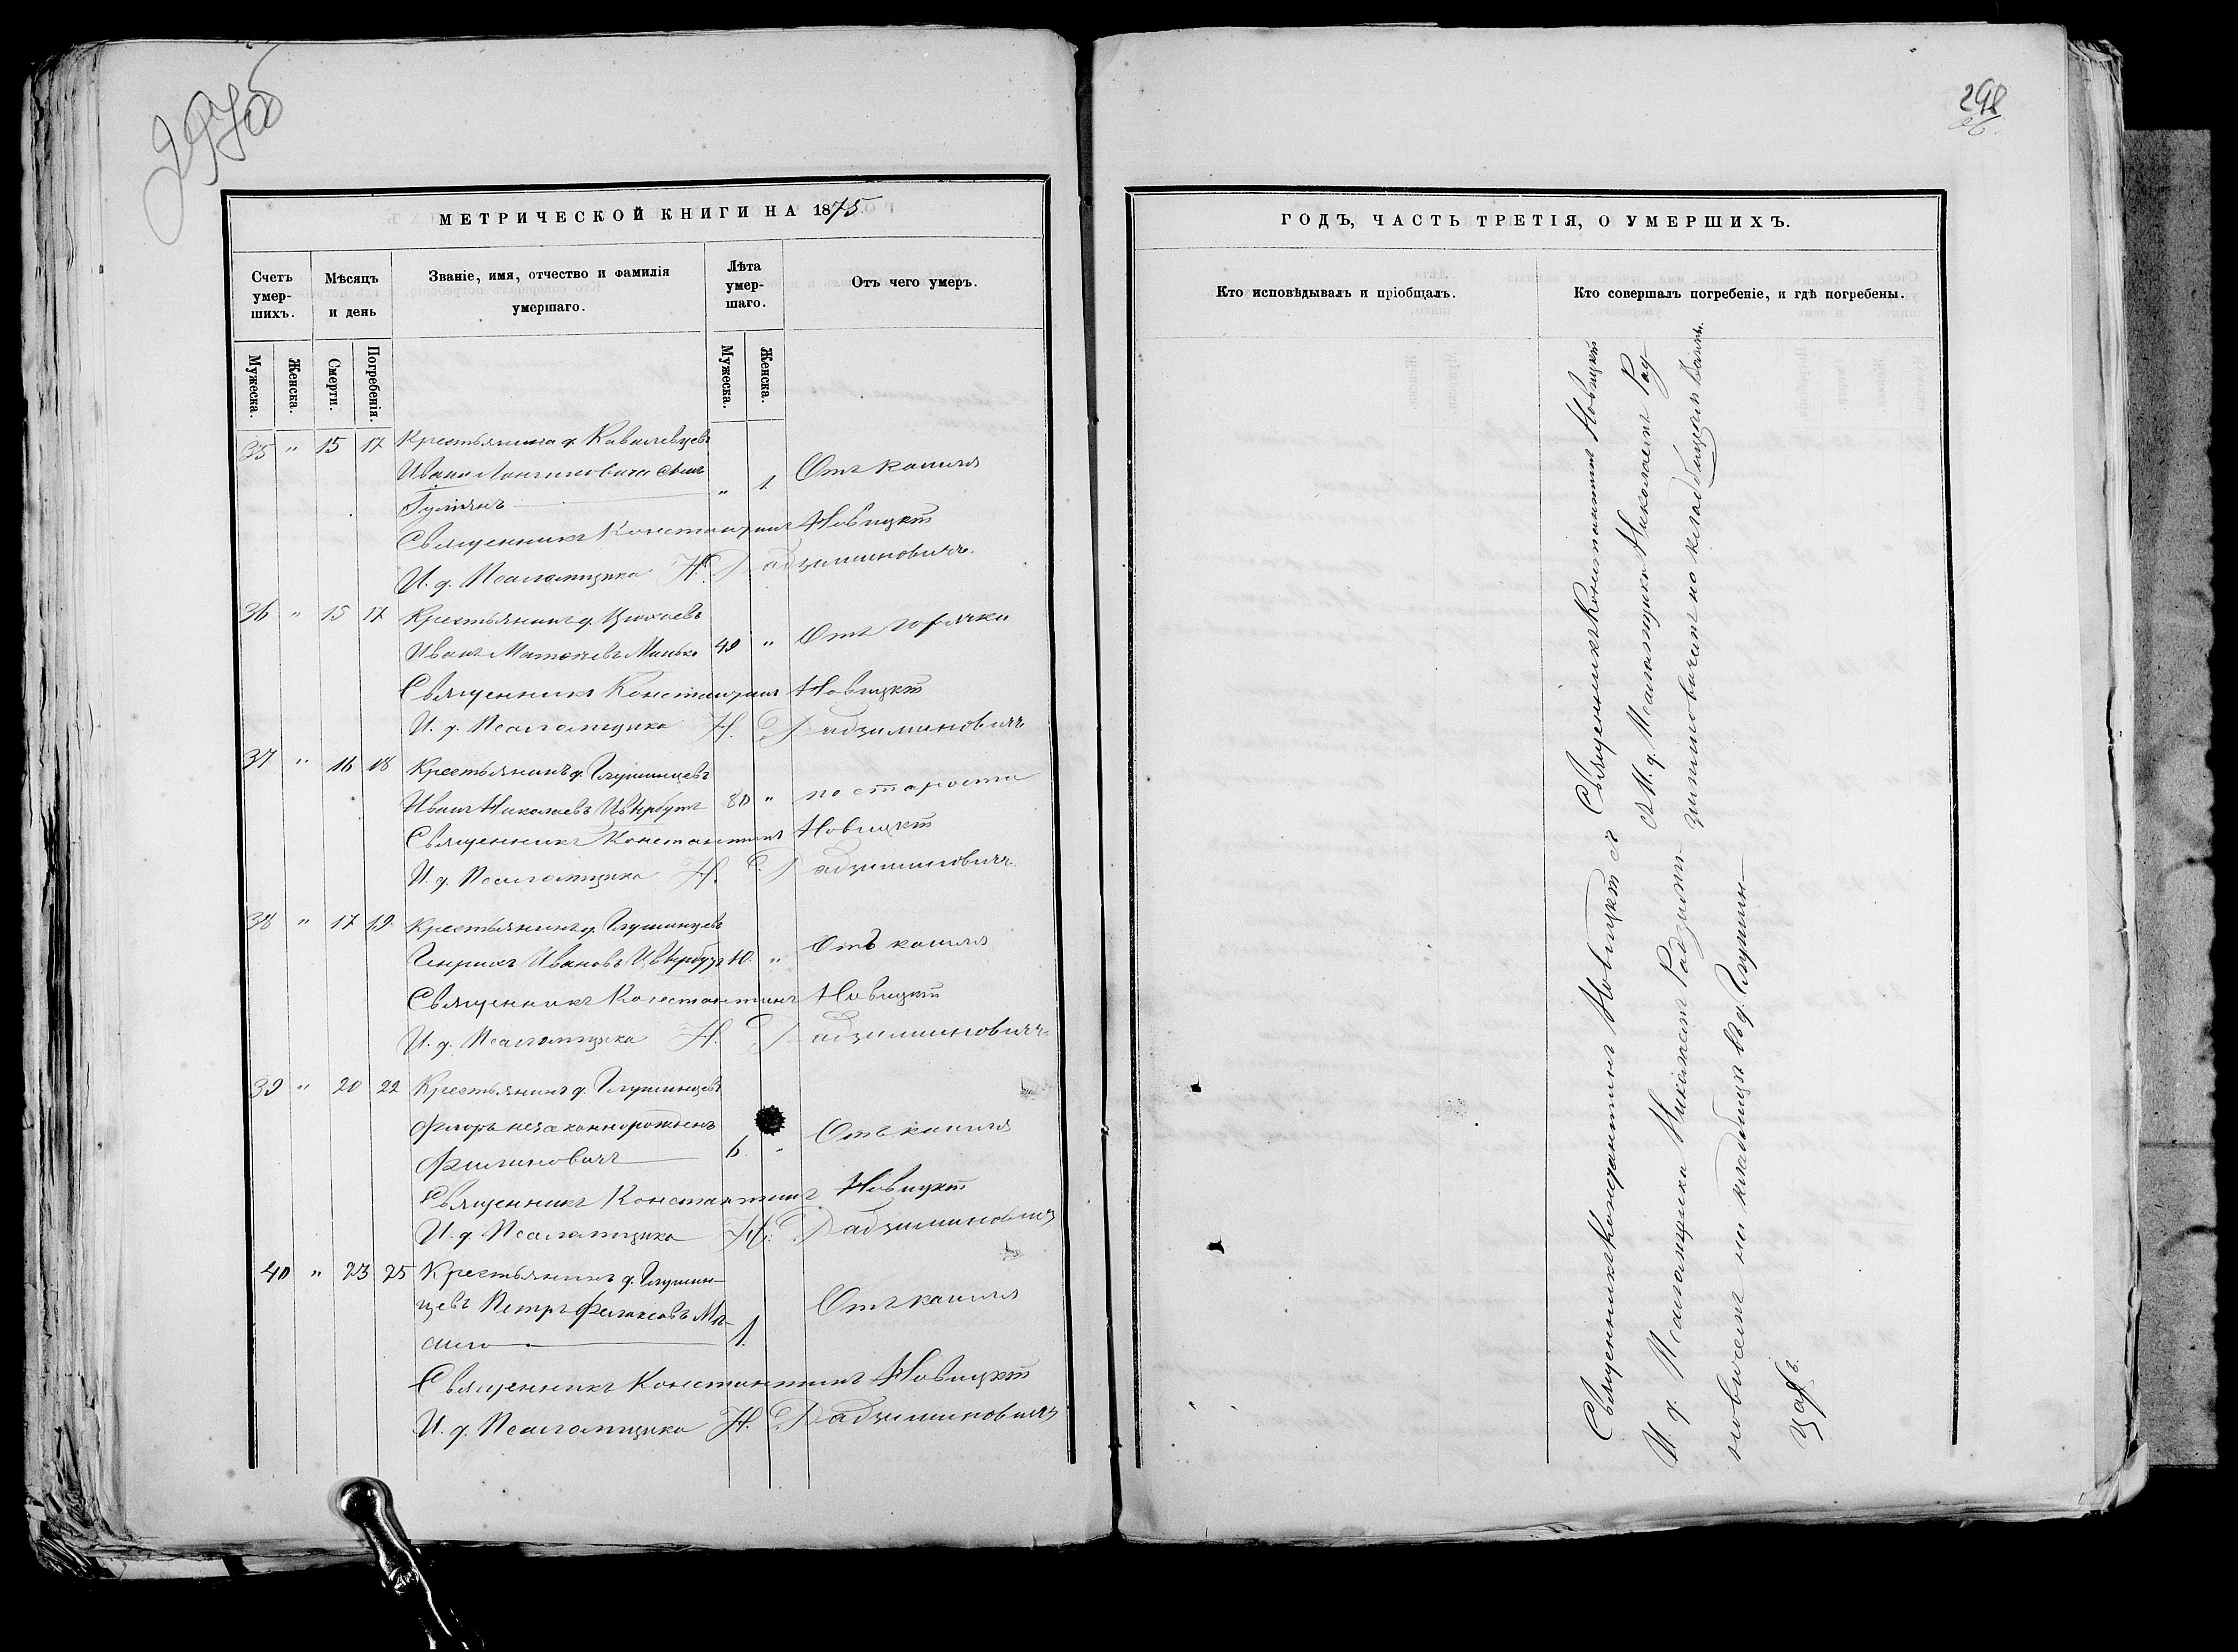 297об
МЕТРИЧЕСКОЙ КНИГИ НА 1875
Счетъ умер-шихъ. Мѣсяцъ и день Званіе, имя, отчество и фамилія умершаго. Лѣта умер-шаго. Отъ чего умеръ.
Мужеска. Женска. Смерти. Погребенія. Мужеска. Женска.
35 " 15 17 Крестьянина д.
Ивана сынъ
" 1. Отъ кашля
Священникъ Константинъ Новицкій
И. д. Псаломщика Н. Радзиминовичъ.
36 " 15 17 Крестьянинъ д.
Иванъ 49 " Отъ горячки
Священникъ Константинъ Новицкій
И. д. Псаломщика Н. Радзиминовичъ
37 " 16 18 Крестьянинъ д. Глушинцевъ
Иванъ Николаевъ Цвѣрбутъ 80 " по старости
Священникъ Константинъ Новицкій
И. д. Псаломщика Н. Радзиминовичъ
38 " 17 19 Крестьянинъ д. Глушинцевъ
Генрихъ Ивановъ Цвѣрбутъ 10. " Отъ кашля
Священникъ Константинъ Новицкій
И. д. Псаломщика Н. Радзиминовичъ
39 " 20 22 Крестьянинъ д. Глушинцевъ
незаконнорожденъ
6. Отъ кашля
Священникъ Константинъ Новицкій
И. д. Псаломщика Н. Радзиминовичъ
40 " 23 25 Крестьянинъ д. Глушин-
цевъ Петръ
1. Отъ кашля
Священникъ Константинъ Новицкій
И. д. Псаломщика Н. Радзиминовичъ
298
об.
ГОДЪ, ЧАСТЬ ТРЕТІЯ, О УМЕРШИХЪ.
Кто исповѣдывалъ и пріобщалъ. Кто совершалъ погребеніе, и гдѣ погребены.
Священникъ Константинъ Новицкій съ
И. д. Псаломщика Николаемъ Радзими-
новичемъ на кладбищѣ въ д. Глушин-
цахъ.
Священникъ Константинъ Новицкій
съ И. д. Псаломщика Николаемъ Рад-
зиминовичемъ на кладбищѣ